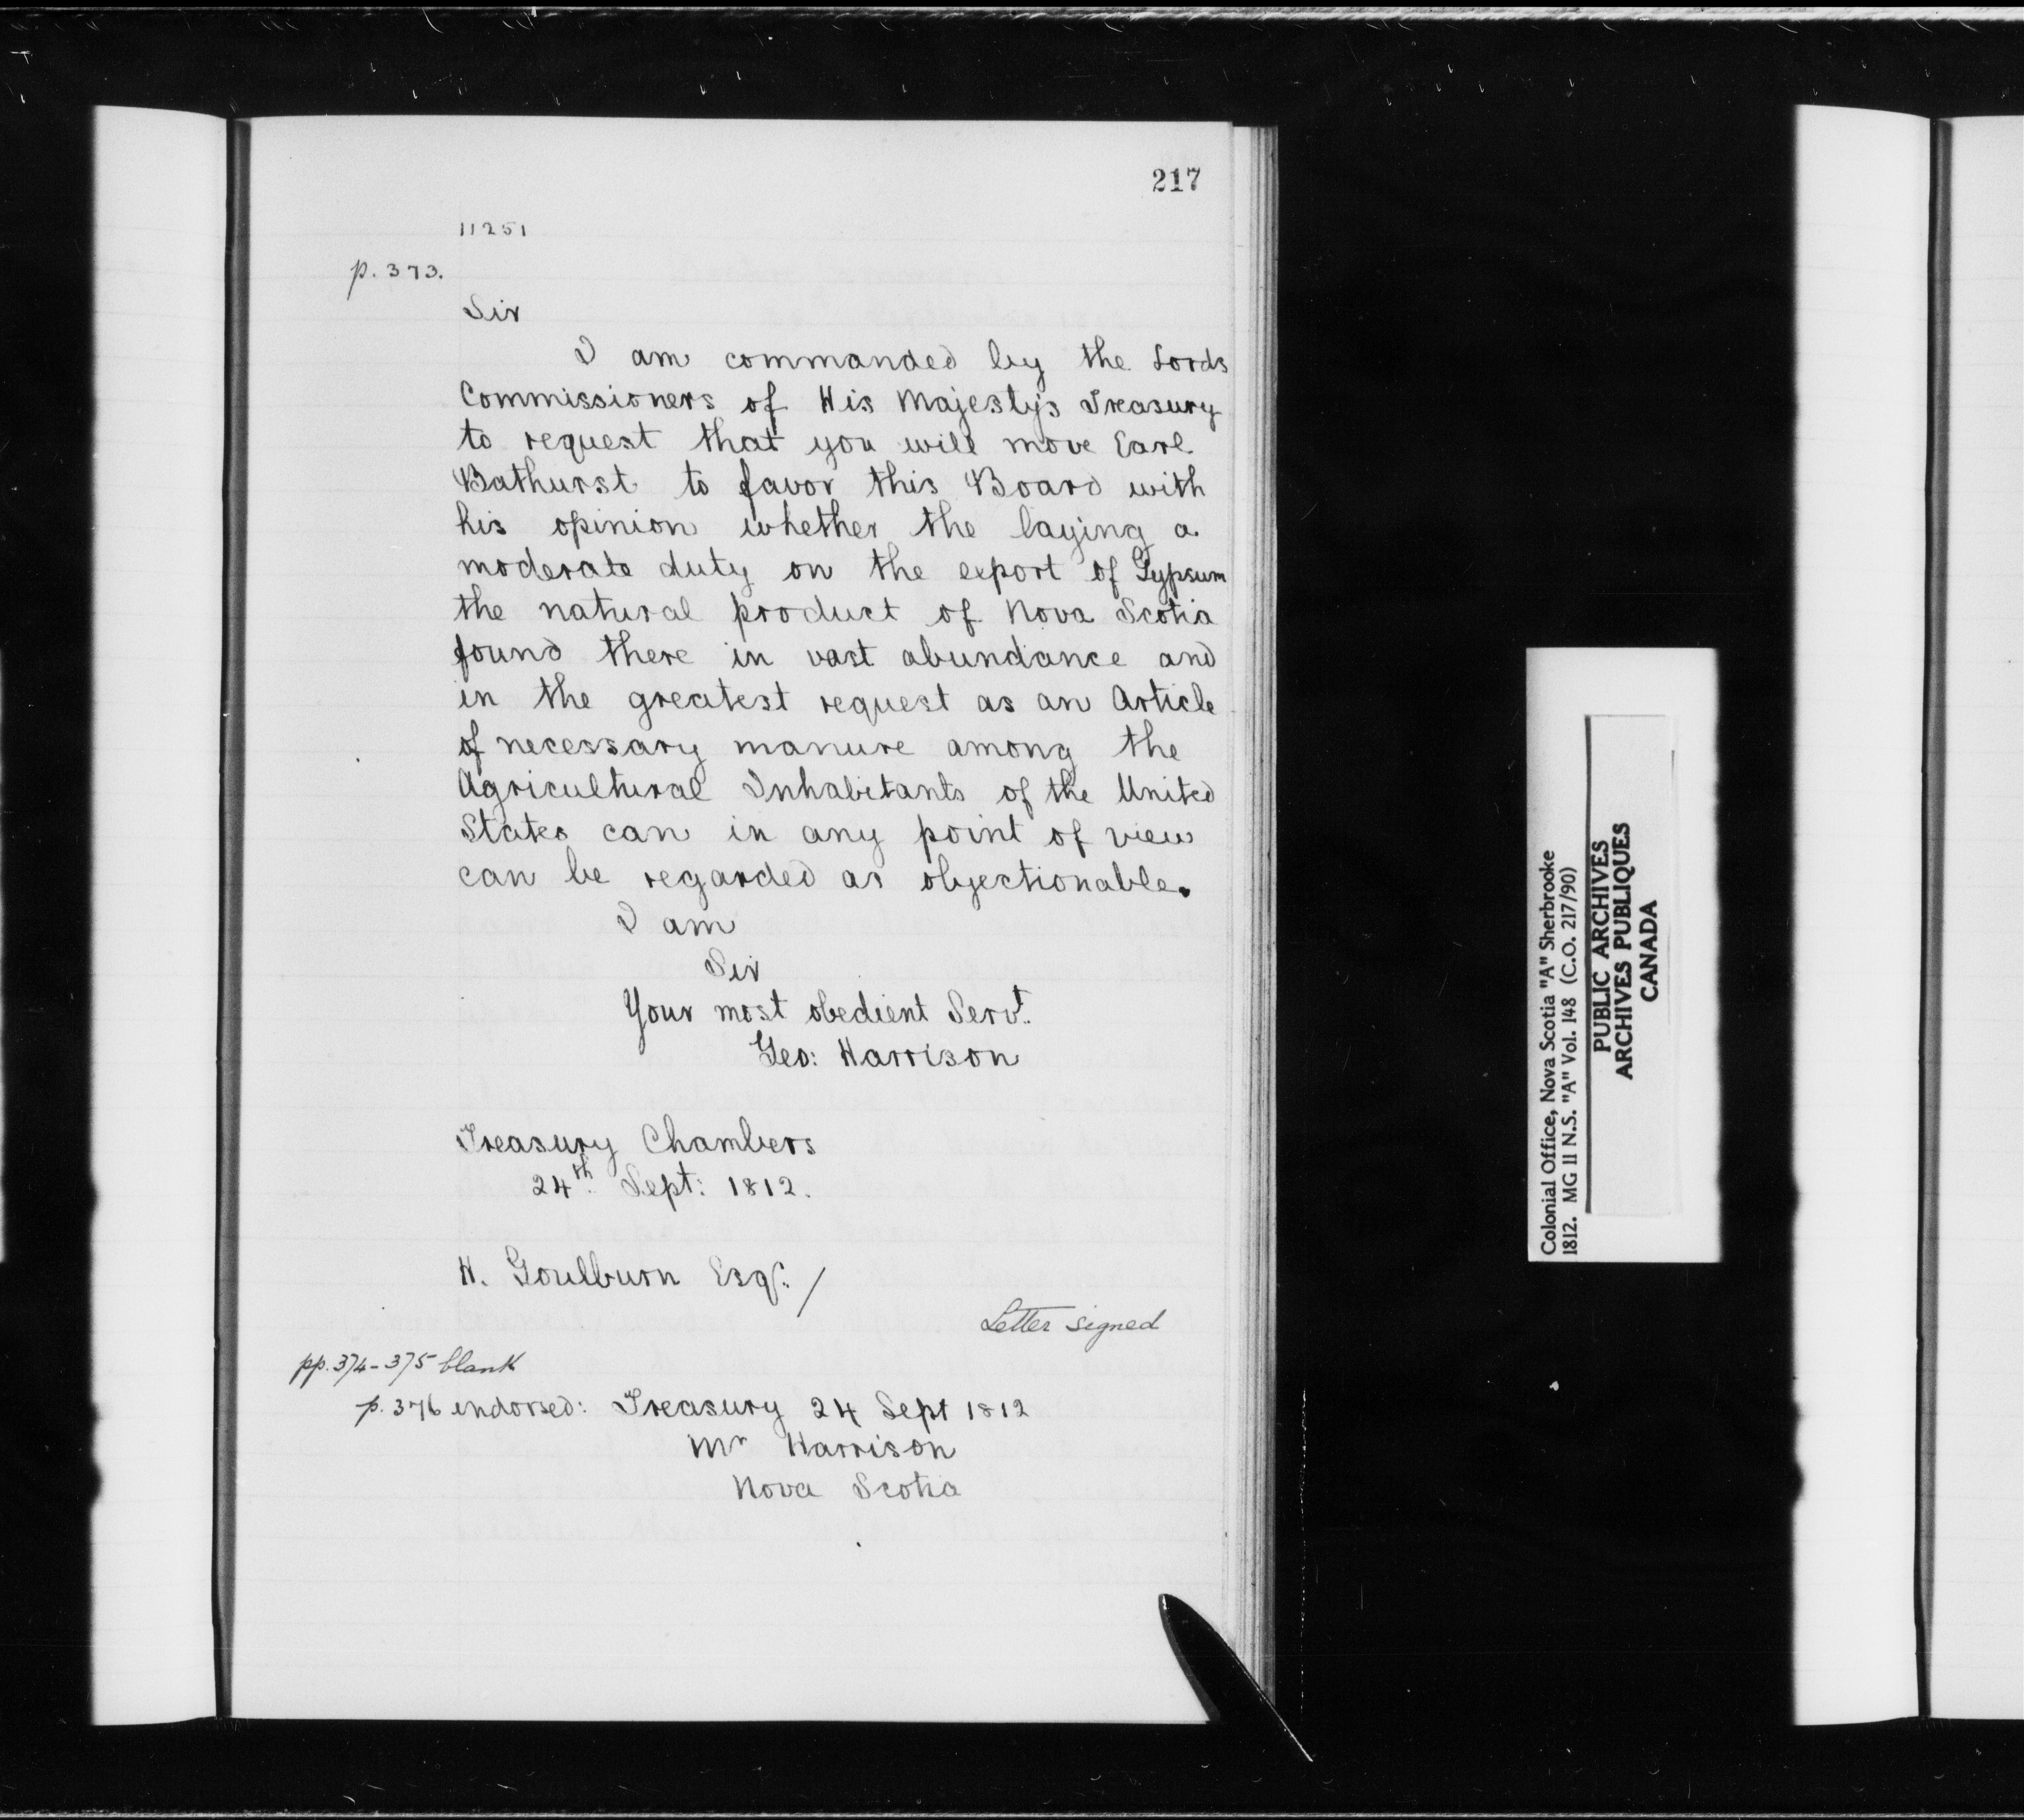 217
11251
p. 373.
Sir
I am commanded by the Lords
Commissioners of His Majesty's Treasury
to request that you will move Earl
Bathurst to favor this Board with
his opinion whether the laying a
moderate duty on the export of Gypsum
the natural product of Nova Scotia
found there in vast abundance and
in the greatest request as an Article
of necessary manure among the
Agricultural Inhabitants of the United
States can in any point of view
can be regarded as objectionable.
I am
Sir
Your most obedient Servt.
Geo: Harrison
Treasury Chambers
24th. Sept: 1812.
H. Goulburn Esqr. /
Letter signed
pp. 374-375 blank
p. 376 endorsed: Treasury 24 Sept 1812
Mr Harrison
Nova Scotia
Colonial Office, Nova Scotia "A" Sherbrooke
1812. MG 11 N.S. "A" Vol. 148 (C.O. 217/90)
PUBLIC ARCHIVES
ARCHIVES PUBLIQUES
CANADA